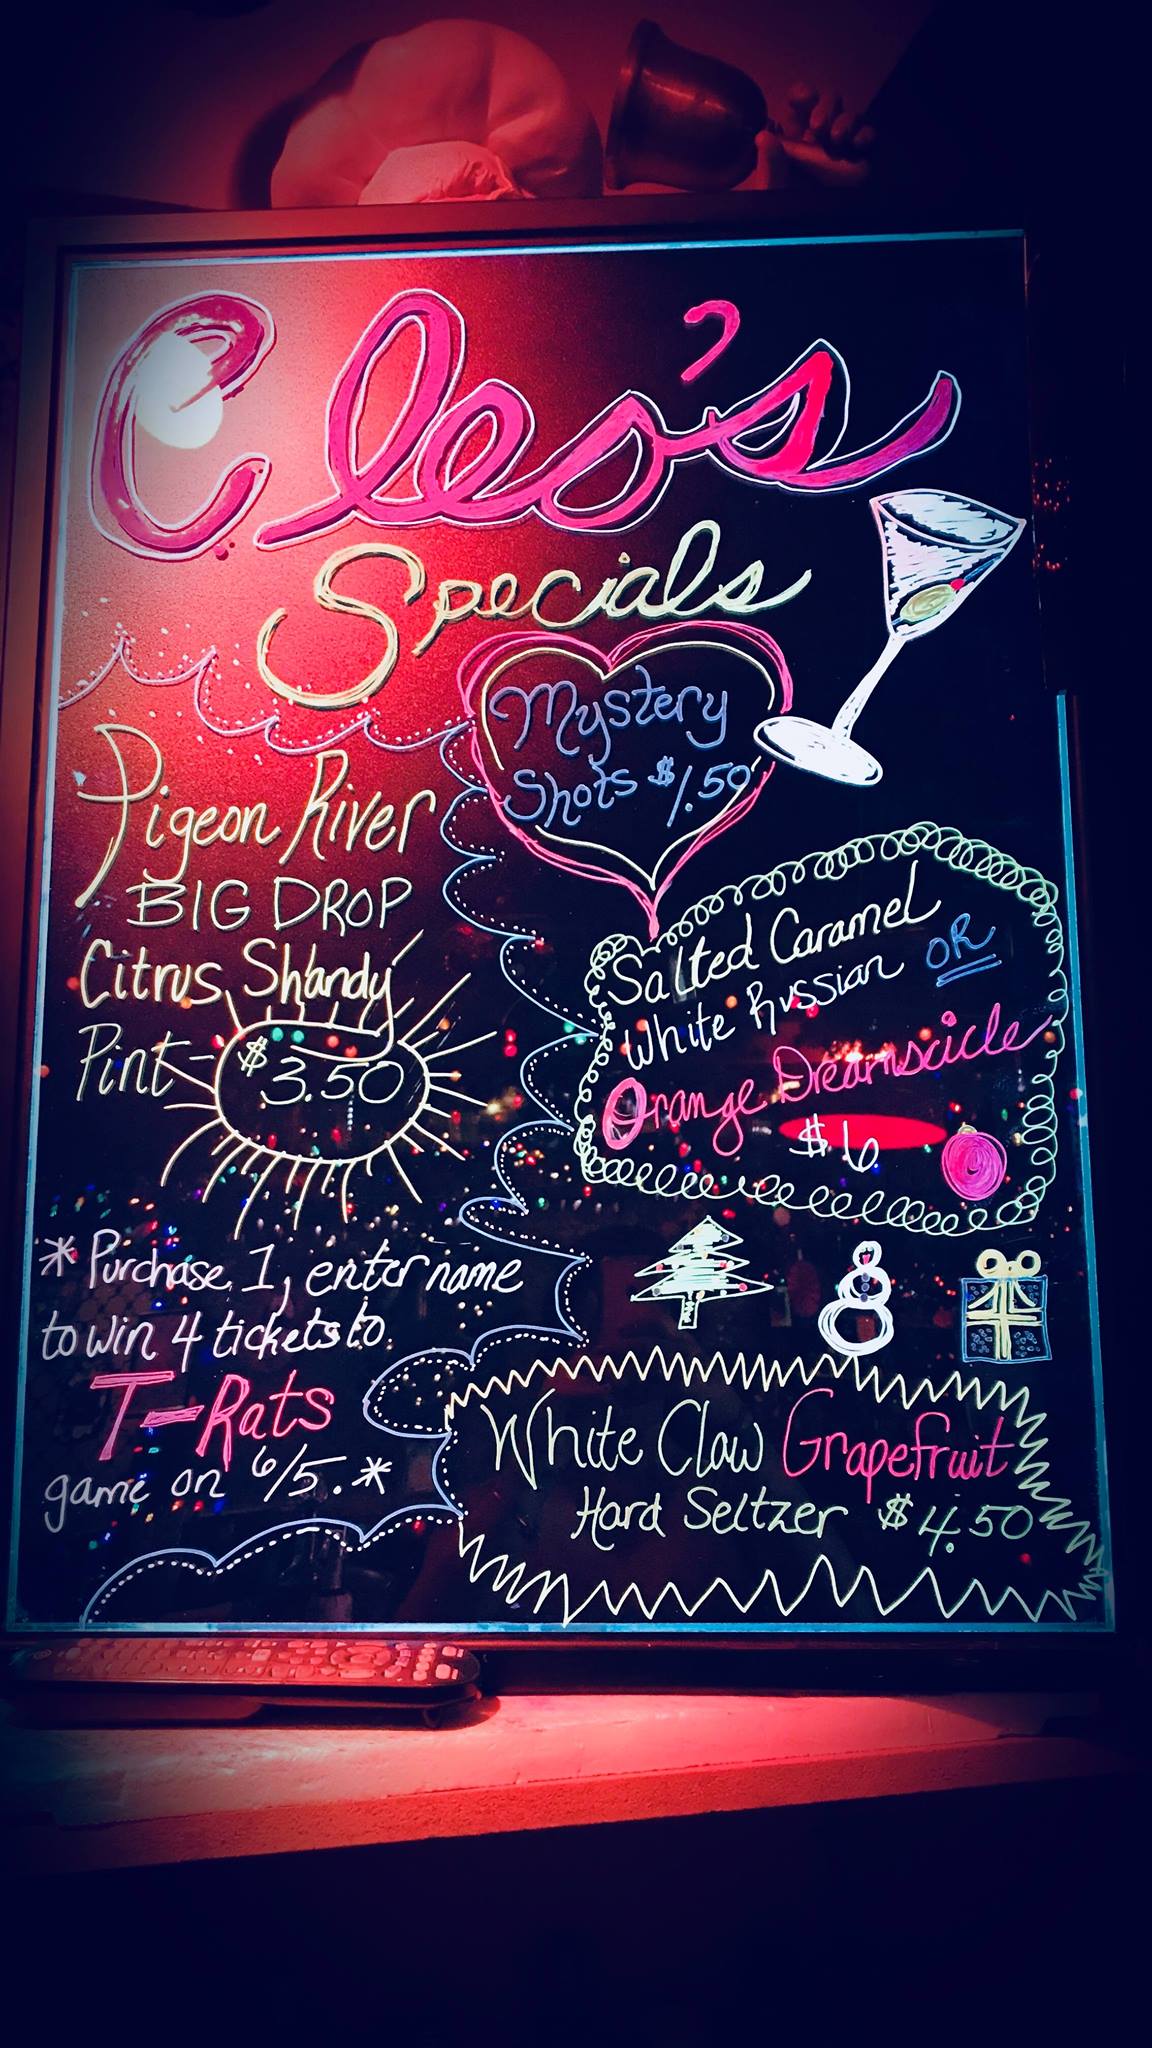 Cleo's
Specials
Mystery
Shots $1.50
Pigeon River
BIG DROP
Citrus Shandy
Pint - $3.50
* Purchase 1, enter name
to win 4 tickets to
T-Rats
game on 6/5. *
Salted Caramel
White Russian OR
Orange Dreamscicle
$6
White Claw Grapefruit
Hard Seltzer $4.50